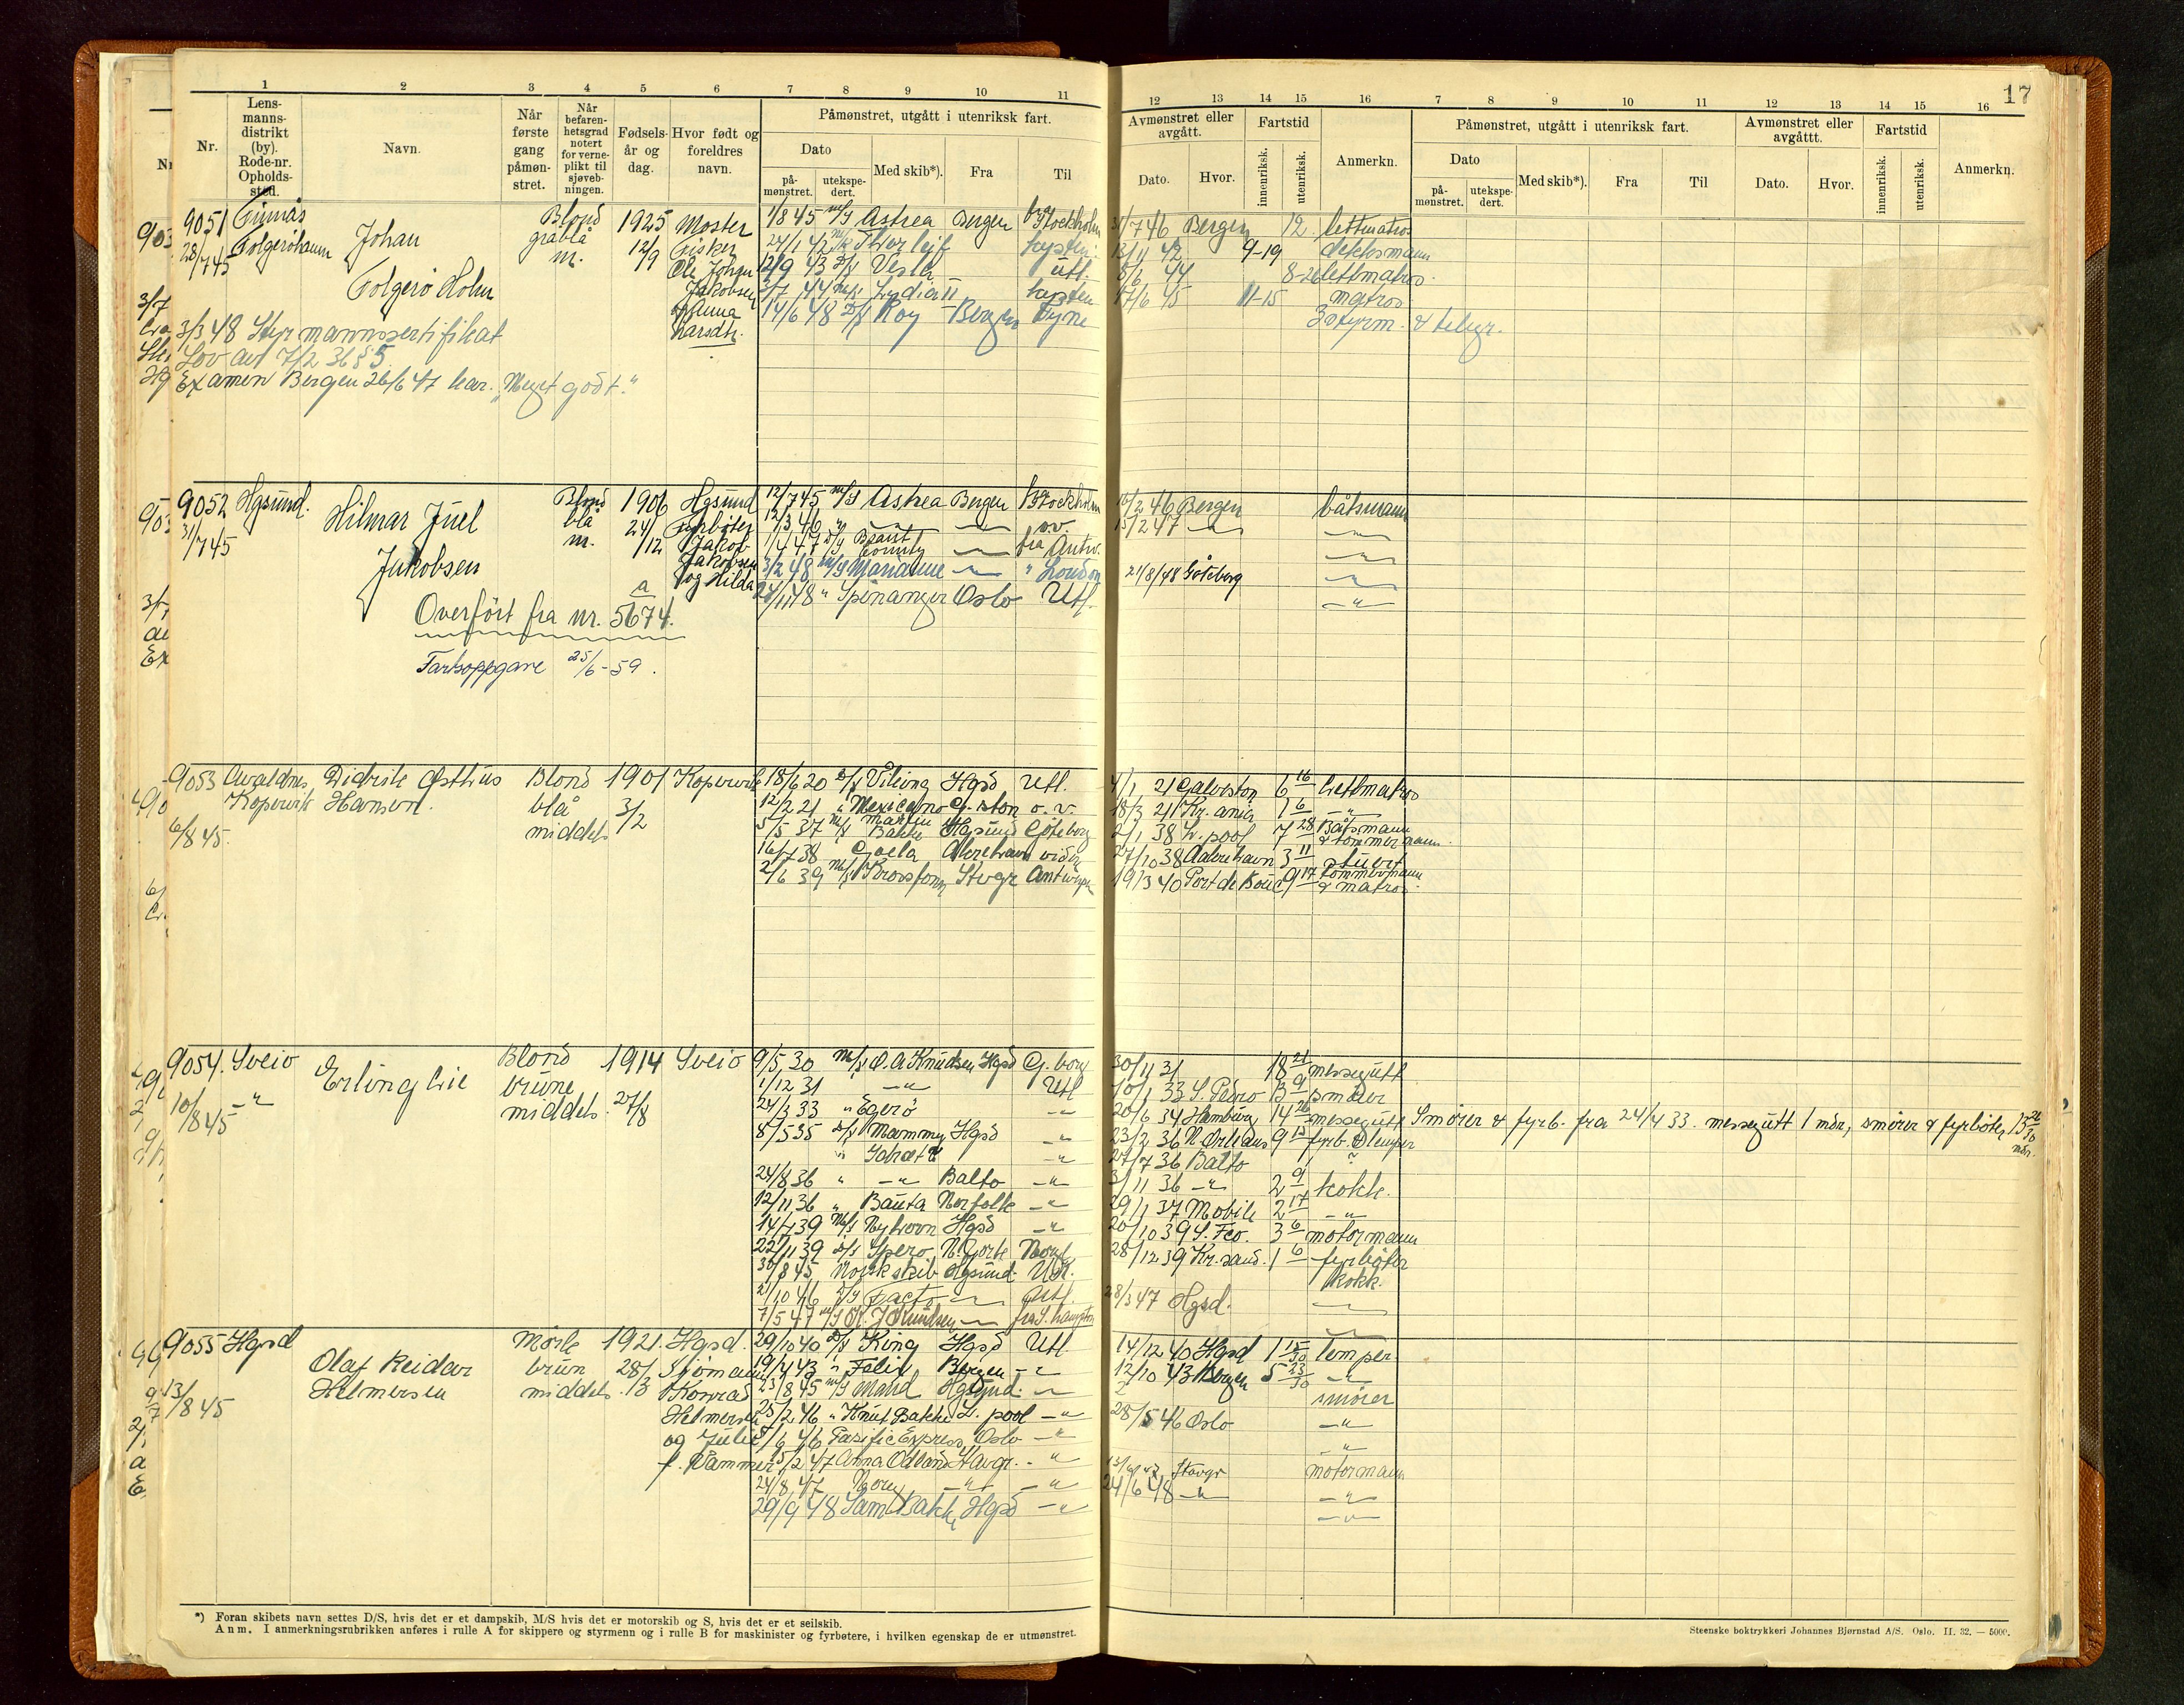 17
1 2 3 4 5 6 7 8 9 10 11
12 13 14 15 16 7 8 9 10 11 12 13 14 15 16
Nr.
Lens-
manns-
distrikt
(by).
Rode-nr.
Opholds-
sted.
Navn.
Når
første
gang
påmøn-
stret.
Når
befaren-
hetsgrad
notert
for verne-
plikt til
sjøveb-
ningen.
Fødsels-
år og
dag.
Hvor født og
foreldres
navn.
Påmønstret, utgått i utenriksk fart.
Dato
på-
mønstret.
utekspe-
dert.
Med skib*).
Fra
Til
Avmønstret eller
avgått.
Dato.
Hvor.
Fartstid
innenriksk.
utenriksk.
Anmerkn.
Påmønstret, utgått i utenriksk fart.
Dato
på-
mønstret.
utekspe-
dert.
Med skib*).
Fra
Til
Avmønstret eller
avgåttt.
Dato.
Hvor.
Fartstid
innenriksk.
utenriksk.
Anmerkn.
9051 Finnås Johan Blond 1925 Moster 1/8 45 m/s Astrea Bergen fra Stockholm 31/7 46 Bergen 12 lettmatros
28/7 45 Folgerøhamn gråblå 12/9 Fisker 24/1 42 m/k Thorleif kysten 13/11 42 9-19 dekksmann
m. Ole Johan 12/9 43 D/s Vestri utl. 8/6 44 8-26 lettmatros.
Folgerø Holm Jakobsen 3/7 44 m/s Lydia II kysten 17/6 45 11-15 matros
14/6 48 D/s Roy Bergen Tyne 3 styrm. & telegr.
Larsdtr.
3/3 48 Styrmannssertifikat
Lov av 7/2 36 § 5
Examen Bergen 26/6 47 kar. "Meget godt."
9052 Hgsund. Hilmar Juel Blond 1906 Hgsund 12/7 45 m/s Astrea Bergen fra Stockholm 10/2 46 Bergen båtsmann
31/7 45 blå 24/12 fyrbøter 12/3 46 " —"— —"— o.v. 15/2 47 —"— —"—
m. Jakob 1/4 47 D/s Brant County —"— fra Antw. —"—
Jakobsen Jakobsen 3/2 48 m/s Marianne —"— " London 21/8/48 Göteborg —"—
og Hilda 24/11 48 " Spinanger Oslo Utl. —"—
Overført fra nr. 5674.a
Fartsoppgave 25/6-59.
9053 Avaldnes Didrik Østhus Blond 1901 Kopervik 18/6 20 D/s Viking Hgsd Utl. 4/1 21 Galveston 6 16 Lettmatros
Kopervik Hansen. blå 3/2 12/2 21 " Mexicano G. ston o.v. 18/3 21 Kr.ania 1 6 —"—
6/8 45. middels 5/5 37 m/s Martin Bakke Hgsund Göteborg 2/1 38 L.pool 7 28 Båtsmann & tømmermann.
16/7 38 Gaela 27/10 38 3 11 stuert
2/6 39 m/s Brovsfonn Stvgr Antwerpen 19/3 40 Port de Bouc 9 17 tømmermann & matros.
9054. Sveio Erling Lie Blond 1914 Sveio 9/5 30 m/s O. A. Knudsen Hgsd G.borg 30/11 31 18 21 messegutt
10/8 45 —"— brune 27/8 1/12 31 —"— Utl 10/1 33 S. Pedro 13 9 smører
middels. 24/3 33 " Egerø —"— 20/6 34 Hamburg 14 26 messegutt Smører & fyrb. fra 24/4 33. messegutt 1 mdr, smører & fyrbøter 13 26/30 mdr.
8/5 35 D/s Mammy Hgsd —"— 23/2 36 N. Orleans 9 15 fyrb. & lemper
" —"— 27/7 36 Balto
24/8 36 " —"— Balto —"— 3/11 36 —"— 2 9 kokk.
12/11 36 " Bauta Norfolk —"— 29/1 37 Mobile 2 17 —"—
14/7 39 m/s Nyhorn Hgsd —"— 20/10 39 S. Fco. 3 6 motormann
22/11 39 D/s Spero, N. Yorke Norge 28/12 39 Kr.sand. 1 6 fyrbøter
30/8 45 Norsk skib Hgsund Utl. kokk.
2/10 46 D/s —"— Utl. 28/3 47 Hgsd. —"—
7/5 47 m/s K. J. Knudsen —"— fra S.hampton —"—
9055 Hgsd Olaf Reidar Mørk 1921. Hgsd. 29/10 40 D/s King Hgsd Utl 14/12 40 Hgsd 1 15/30 lemper
13/8 45 Helmersen brun 28/3 Sjømann 19/4 43 " Felix Bergen —"— 12/10 43 Bergen 5 23/30 —"—
middels. Konrad 23/8 45 m/s Hgsund. —"— smører
Helmersen 25/2 46 " Knut Bakke L. pool —"— 28/5 46 Oslo —"—
og Julie 5/6 46 Pasific Express, Oslo —"— —"—
f. Vammer 15/2 47 Anna Odland Stavgr. —"— 13/6 47 Stavgr motormann
24/8 47 Norn —"— —"— 24/6 48 —"— —"—
29/9 48 Sam Bakke Hgsd —"— —"—
*) Foran skibets navn settes D/S, hvis det er et dampskib, M/S hvis det er motorskib og S, hvis det er et seilskib.
Anm. I anmerkningsrubrikken anføres i rulle A for skippere og styrmenn og i rulle B for maskinister og fyrbøtere, i hvilken egenskap de er utmønstret.
Steenske boktrykkeri Johannes Bjørnstad A/S. Oslo. II. 32. — 5000.